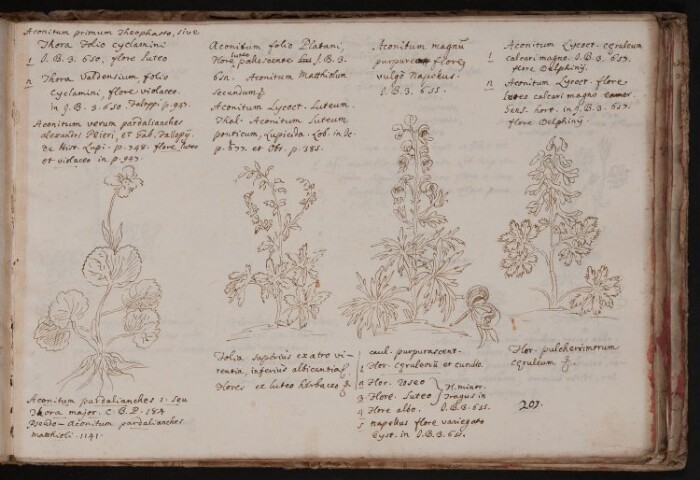 Aconitum primum Theophasto, sive
Thora Folio cyclamini
1 J.B.3. 650, flore luteo
2 Thora Valdensium folio
Cyclamini, flore violaceo.
in J.B.3 650. p. 993.
Aconitum verum pardalianches
et Gab.
de Hist. Lupi. p. 348. flore luteo
et violaceo in p. 993.
Aconitum pardalianches 1. seu
Thora major. C.B.P. 184
Pseudo-Aconitum pardalianches
Matthioli. 1141.
Aconitum folio Platani,
flore luteo pallescente J.B.3.
652. Aconitum Matthiolun
Secundum
Aconitum Lycoct. Luteum.
Thal. Aconitum Luteum
ponticum, Lupicida. Lob. in Ic.
p. 677. et Obs. p. 385.
Folia superius ex atro vi-
rentia, inferius albicantia
flores ex luteo herbaceo
Aconitum magnum
purpureo flore
vulgo Napellus.
J.B.3. 655.
caul. purpurascent.
1 flor. cęruleii et
2 flor. roseo
3 flore. luteo
4 flore albo.
H. minor.
Tragus in
J.B.3. 655.
5 napellus flore variegato
Eyst. in J.B.3. 656.
1 Aconitum Lycoct. cęruleum
calcari magno. J.B.3. 657.
flore Delphinij.
2 Aconitum Lycoct. flore
calcari magno
hort. in J.B.3. 657.
flore Delphinij.
flor. pulcherrimorum
cęruleum
207.